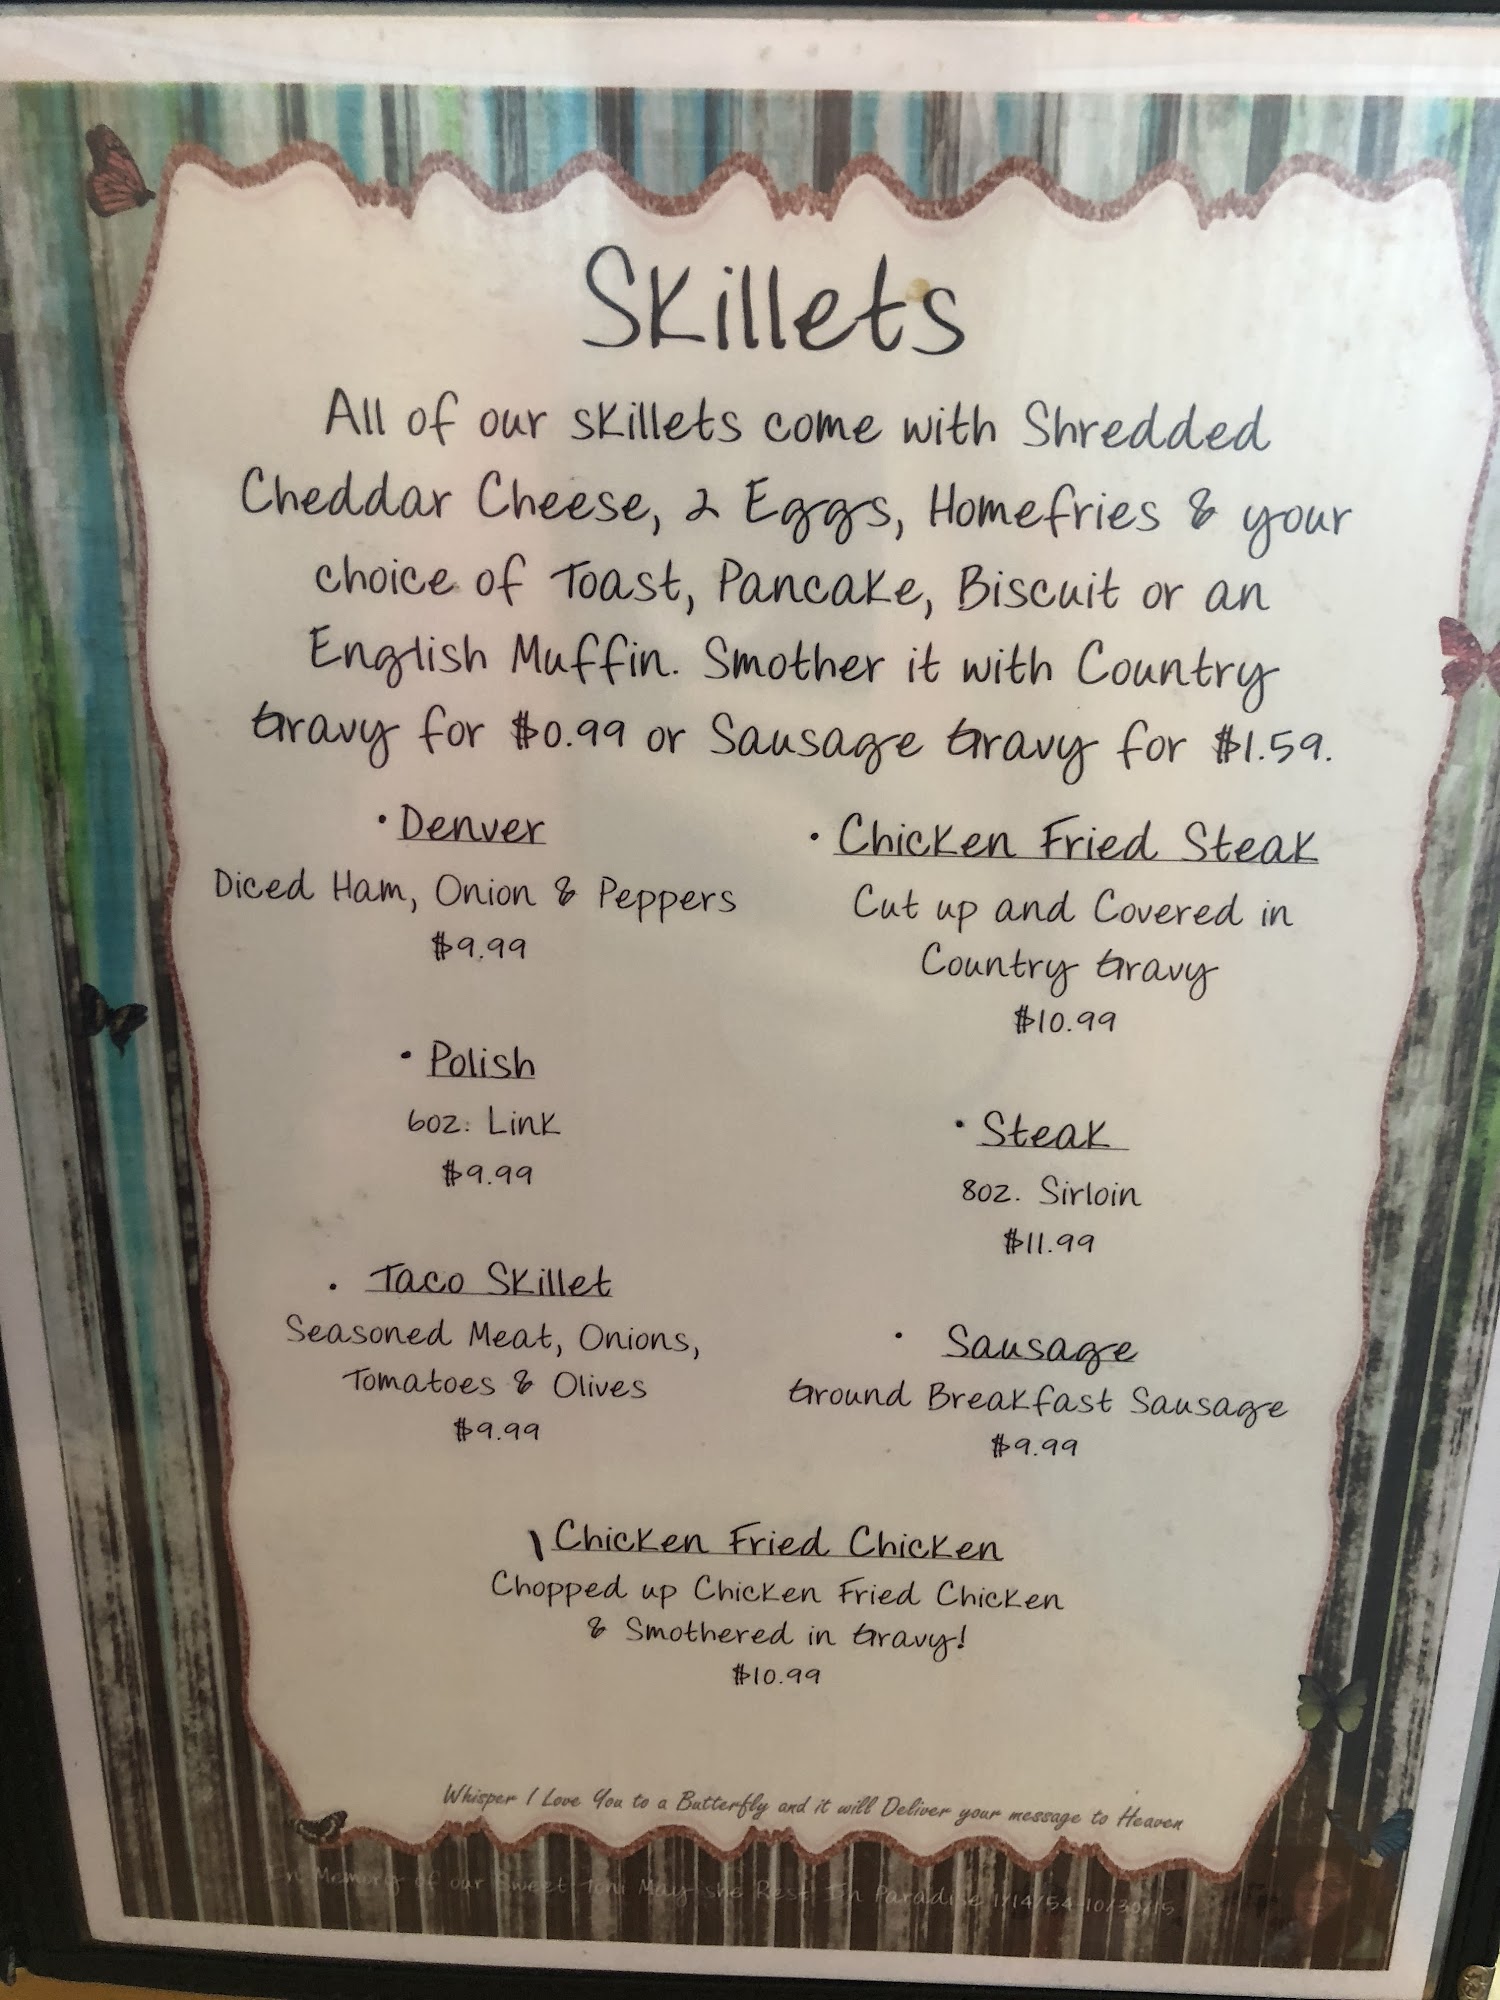 Skillets
All of our skillets come with Shredded
Cheddar Cheese, 2 Eggs, Homefries & your
choice of Toast, Pancake, Biscuit or an
English Muffin. Smother it with Country
Gravy for $0.99 or Sausage Gravy for $1.59.
• Denver
Diced Ham, Onion & Peppers
$9.99
• Polish
6oz. Link
$9.99
• Taco Skillet
Seasoned Meat, Onions,
Tomatoes & Olives
$9.99
• Chicken Fried Steak
Cut up and Covered in
Country Gravy
$10.99
• Steak
8oz. Sirloin
$11.99
• Sausage
Ground Breakfast Sausage
$9.99
Chicken Fried Chicken
Chopped up Chicken Fried Chicken
& Smothered in Gravy!
$10.99
Whisper I Love You to a Butterfly and it will Deliver your message to Heaven
In Memory of our Sweet Toni May she Rest In Paradise 1/14/54-10/30/15